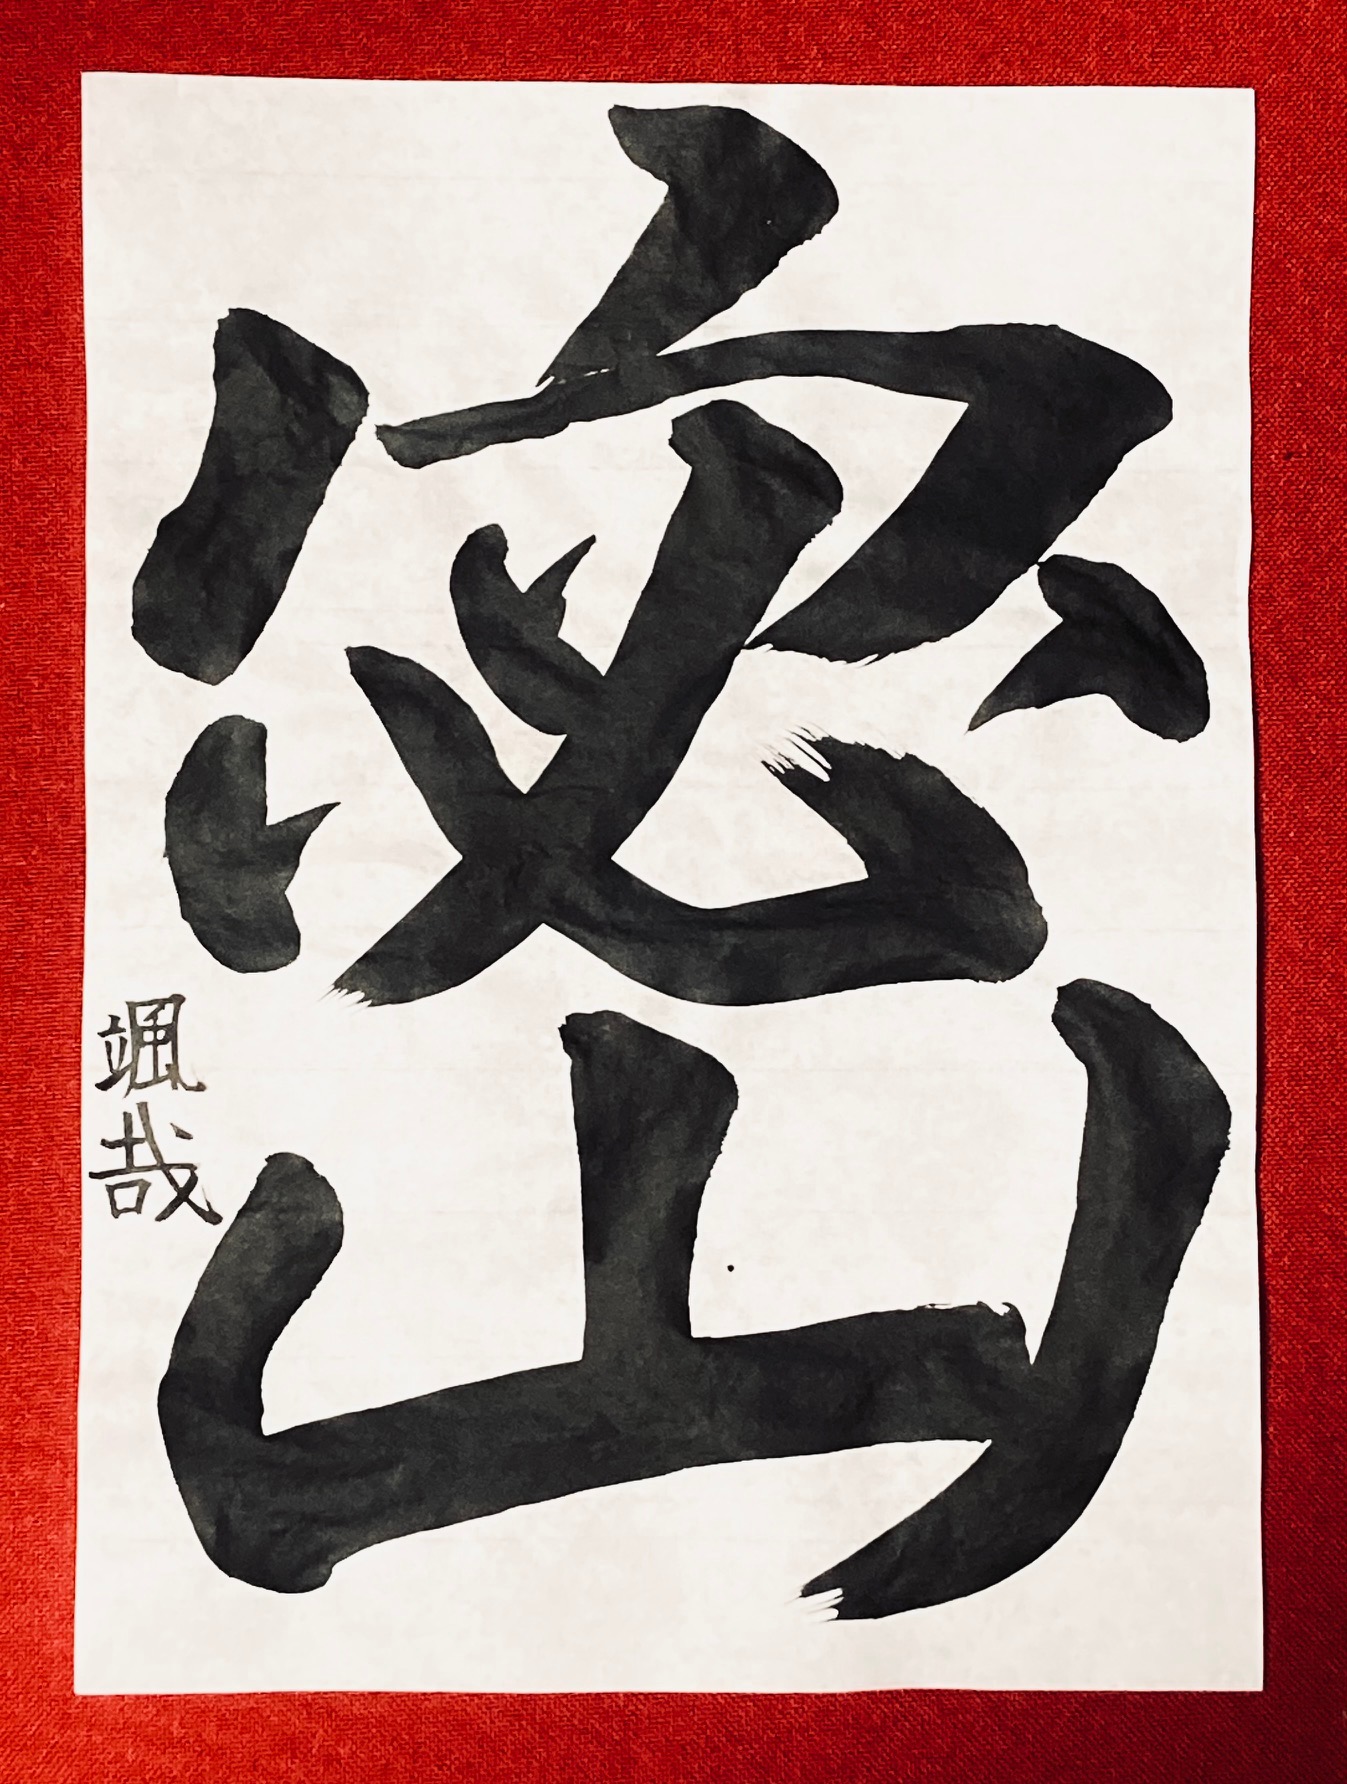 密
颯哉